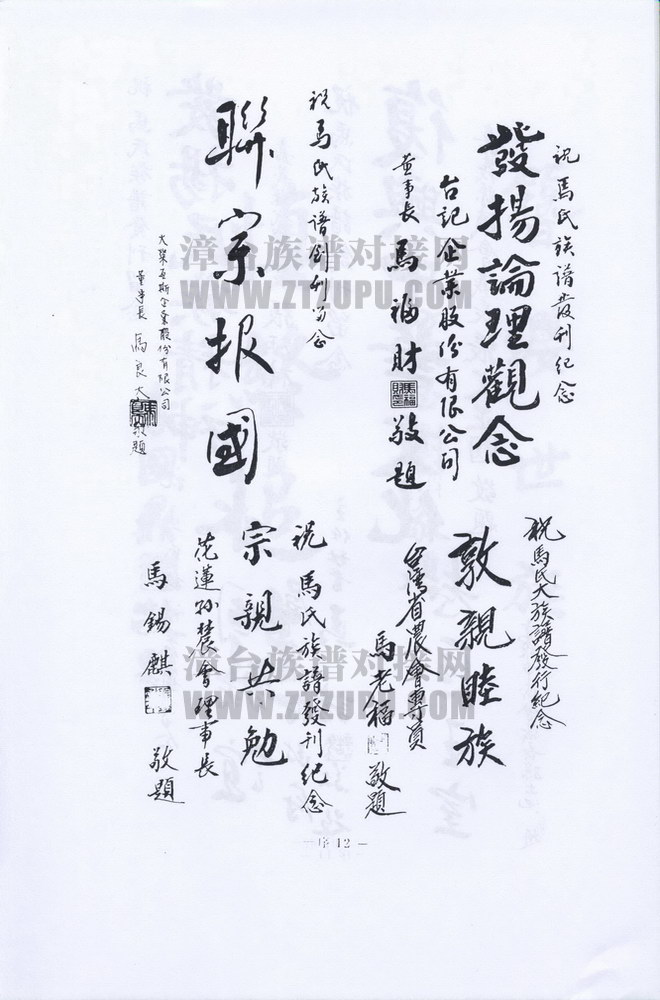 祝馬氏族譜叢刊紀念
發揚論理觀念
台記企業股份有限公司
董事長 馬福財 敬題
祝馬氏族譜創刊留念
聯宗报國
大榮亚斯企業股份有限公司
董事長 馬良大 敬題
祝馬氏大族譜發行紀念
敦親睦族
台灣省農會專員
馬老福 敬題
祝馬氏族譜發刊紀念
宗親共勉
花蓮 農會理事長
馬錫麒 敬題
漳台族谱对接网
WWW.ZTZUPU.COM
漳台族谱对接网
WWW.ZTZUPU.COM
－序 12－